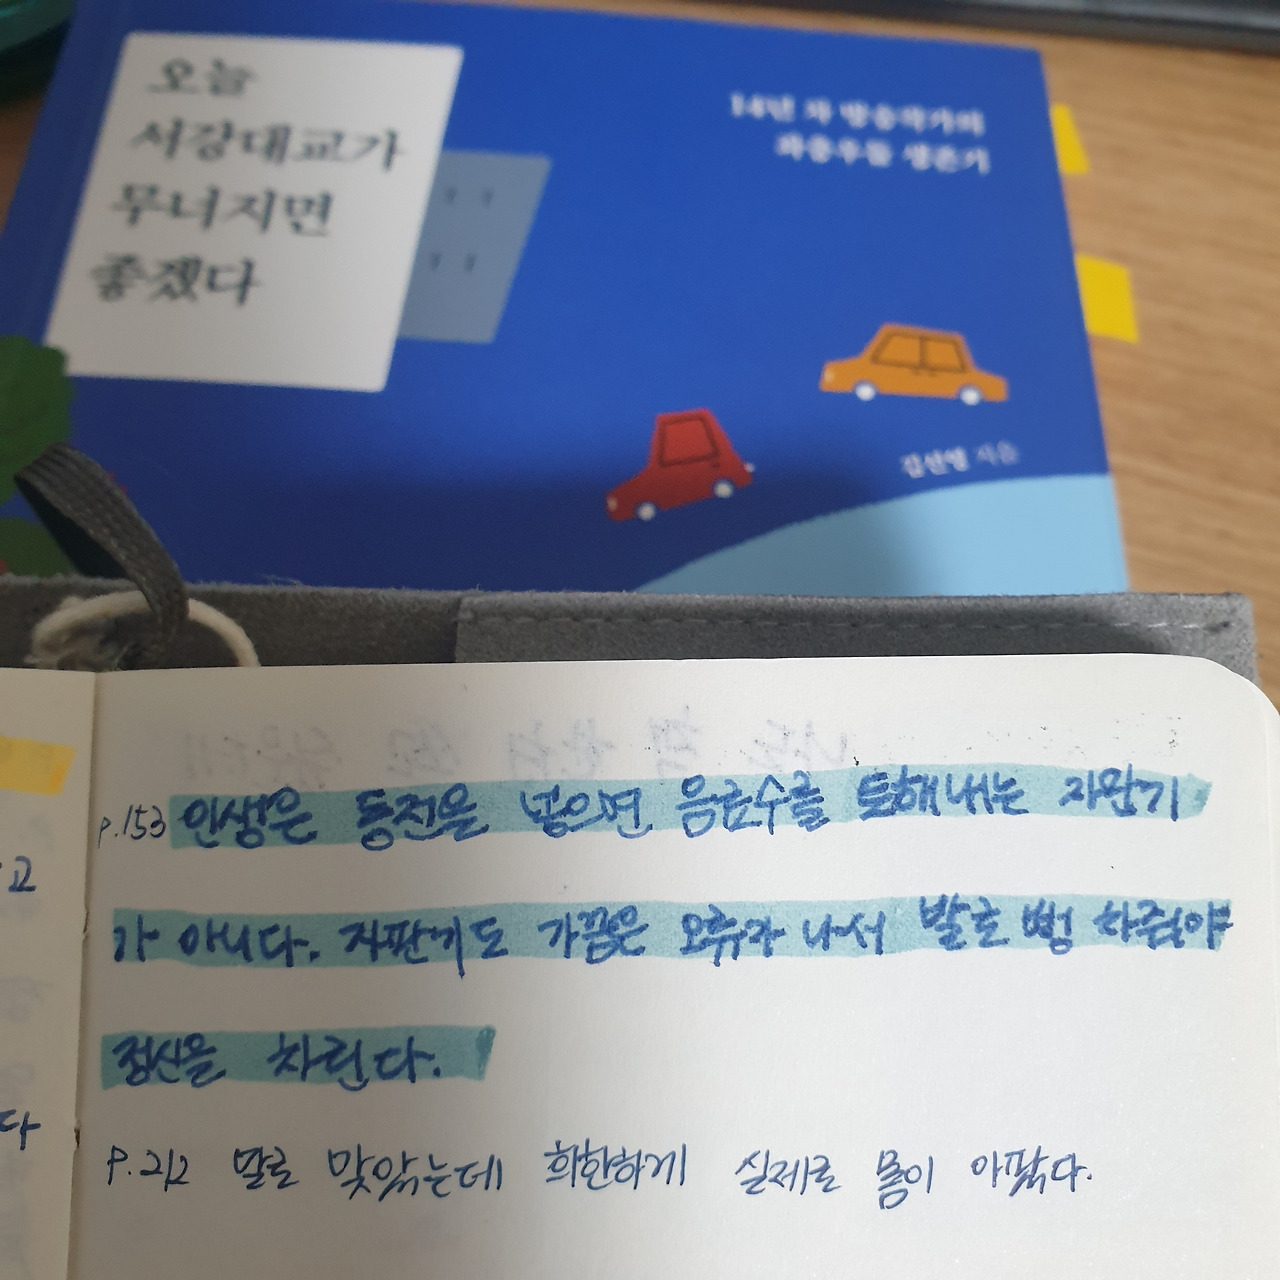 오늘
서강대교가
무너지면
좋겠다
14년 차 방송작가의
좌충우돌 생존기
김선영 지음
고
다
p.153 인생은 동전을 넣으면 음료수를 토해내는 자판기
가 아니다. 자판기도 가끔은 오류가 나서 발로 뻥 차줘야
정신을 차린다.
p.212 말로 맞았는데 희한하게 실제로 몸이 아팠다.